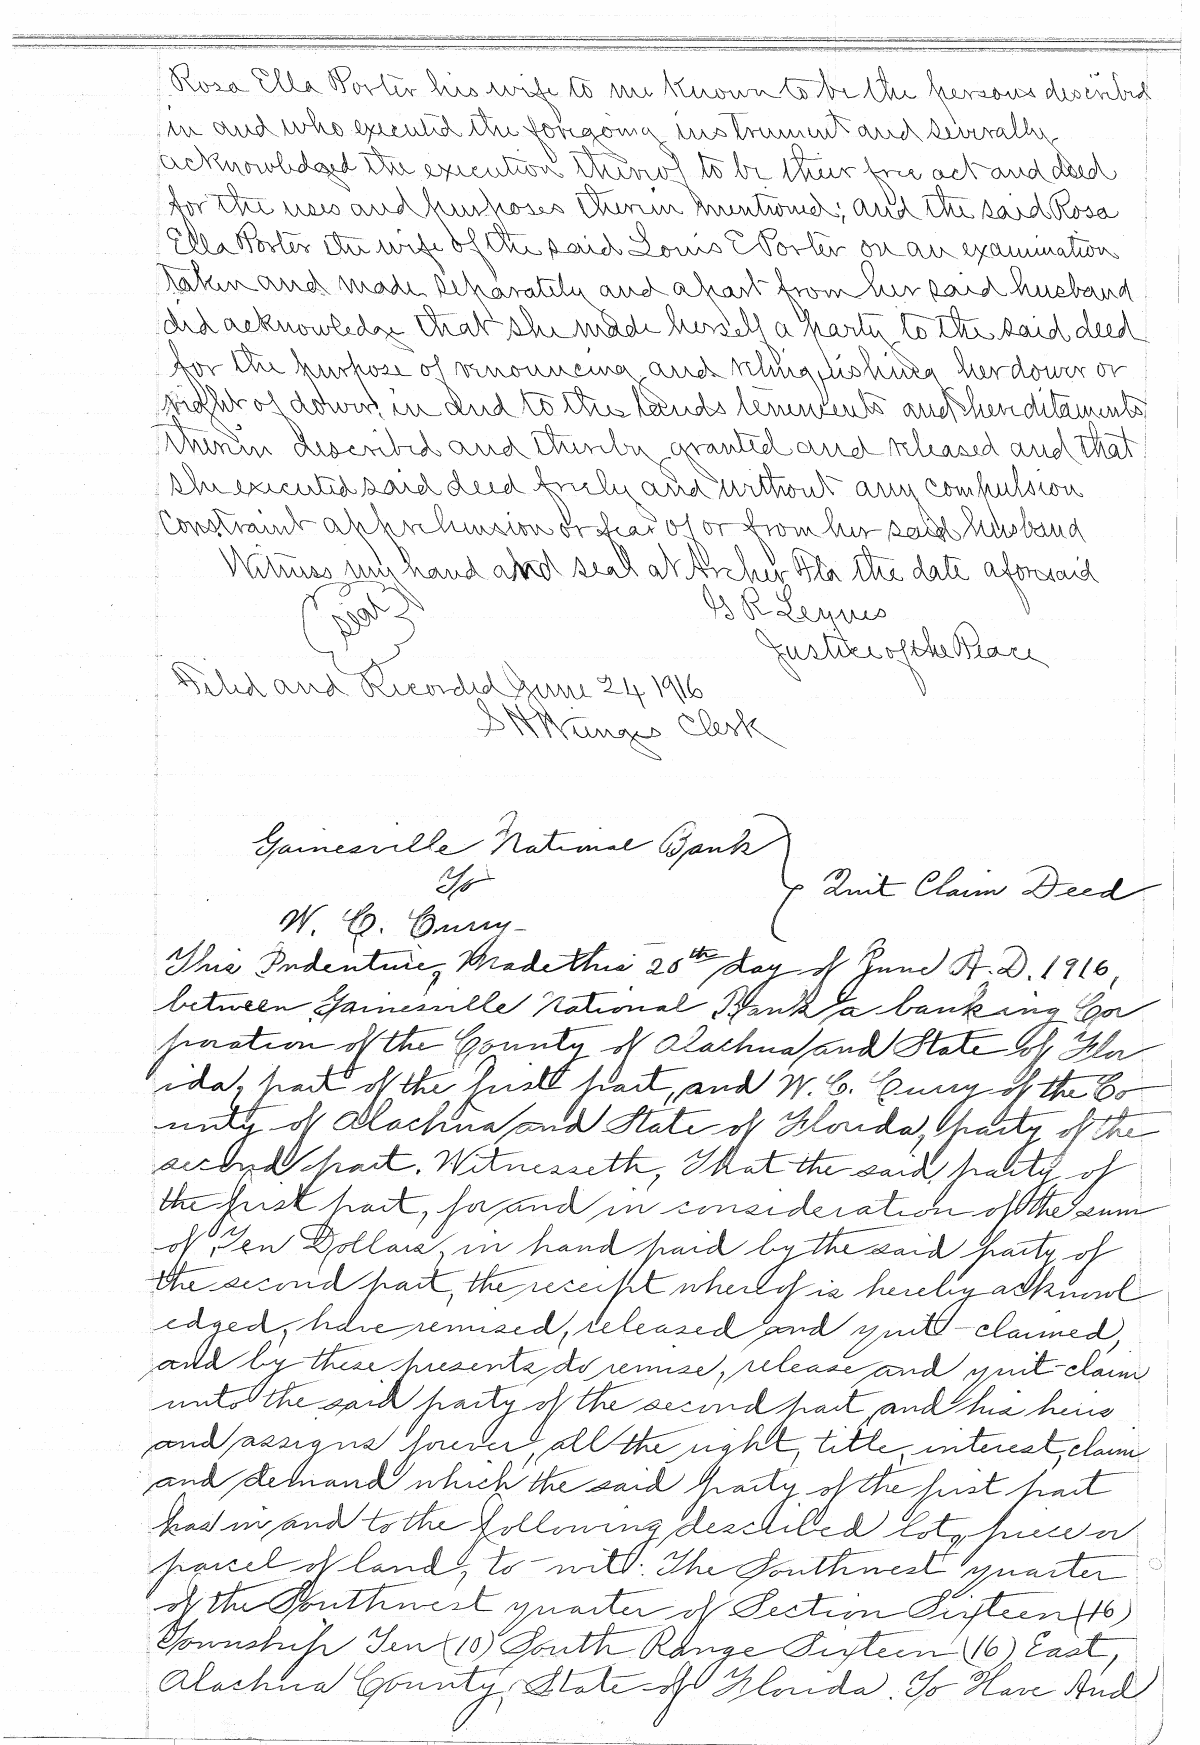 Rosa Ella Porter his wife to me known to be the persons described
in and who executed the foregoing instrument and severally
acknowledged the execution thereof to be their free act and deed
for the uses and purposes therein mentioned; and the said Rosa
Ella Porter the wife of the said Louis E Porter on an examination
taken and made separately and apart from her said husband
did acknowledge that she made herself a party to the said deed
for the purpose of renouncing and relinquishing her dower or
right of dower, in and to the lands tenements and hereditaments
therein described and thereby granted and released and that
she executed said deed freely and without any compulsion
constraint apprehension or fear of or from her said husband
Witness my hand and seal at Archer Fla the date aforesaid
(Seal) G R
Justice of the Peace
Filed and Recorded June 24 1916
S H Wienges Clerk
Gainesville National Bank
To
Quit Claim Deed
W. C. Curry-
This Indenture, Made this 20th day of June A.D. 1916,
between Gainesville National Bank a banking Cor
poration of the County of Alachua and State of Flor
ida, part of the first part, and W. C. Curry of the Co
unty of Alachua and State of Florida, party of the
second part. Witnesseth, That the said party of
the first part, for and in consideration of the sum
of Ten Dollars, in hand paid by the said party of
the second part, the receipt whereof is hereby acknowl
edged, have remised, released and quit-claimed,
and by these presents do remise, release and quit-claim
unto the said party of the second part and his heirs
and assigns forever, all the right, title, interest, claim
and demand which the said party of the first part
has in and to the following described lot, piece or
parcel of land, to-wit: The Southwest quarter
of the Southwest quarter of Section Sixteen (16)
Township Ten (10) South Range Sixteen (16) East,
Alachua County, State of Florida. To Have And